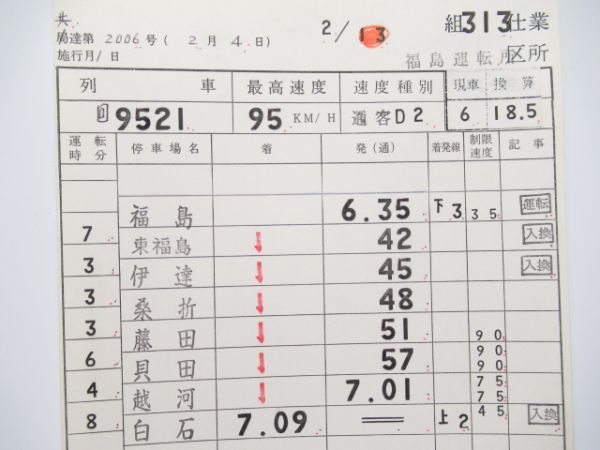 共
局達第 2006 号 ( 2 月 4 日) 2/13 組 313 仕業
施行月/日 福島運転所 区所
列 車 最高速度 速度種別 現車 換算
回9521 95 KM/H 通客D2 6 18.5
運転時分 停車場名 着 発(通) 着発線 制限速度 記事
福島 6.35 下3 35 運転
7
東福島 ↓ 42 入換
3
伊達 ↓ 45 入換
3
桑折 ↓ 48
3
藤田 ↓ 51 90
6 90
貝田 ↓ 57 90
4 75
越河 ↓ 7.01 75
8 45
白石 7.09 == 上2 入換